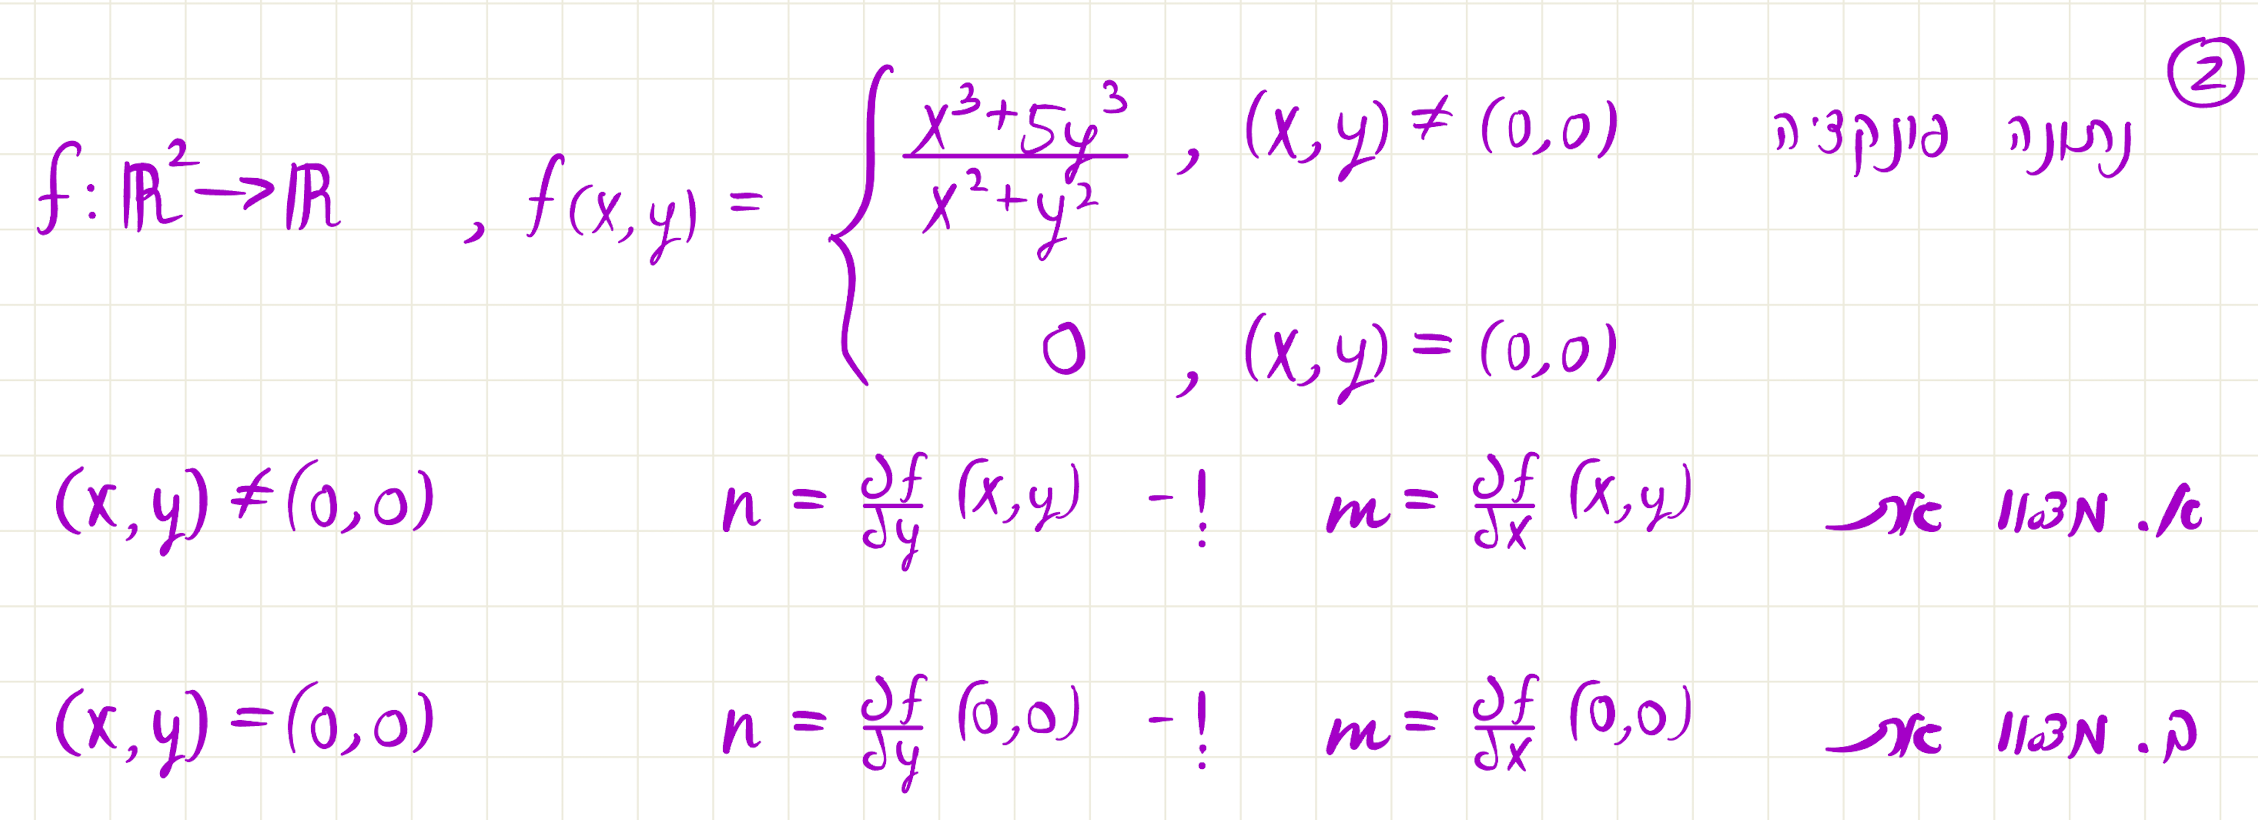 ② נתונה פונקציה f: ℝ² → ℝ , f(x,y) = { (x³+5y³)/(x²+y²) , (x,y) ≠ (0,0)
0 , (x,y) = (0,0)
א. מצאו את m = ∂f/∂x (x,y) ו- n = ∂f/∂y (x,y) (x,y) ≠ (0,0)
ב. מצאו את m = ∂f/∂x (0,0) ו- n = ∂f/∂y (0,0) (x,y) = (0,0)